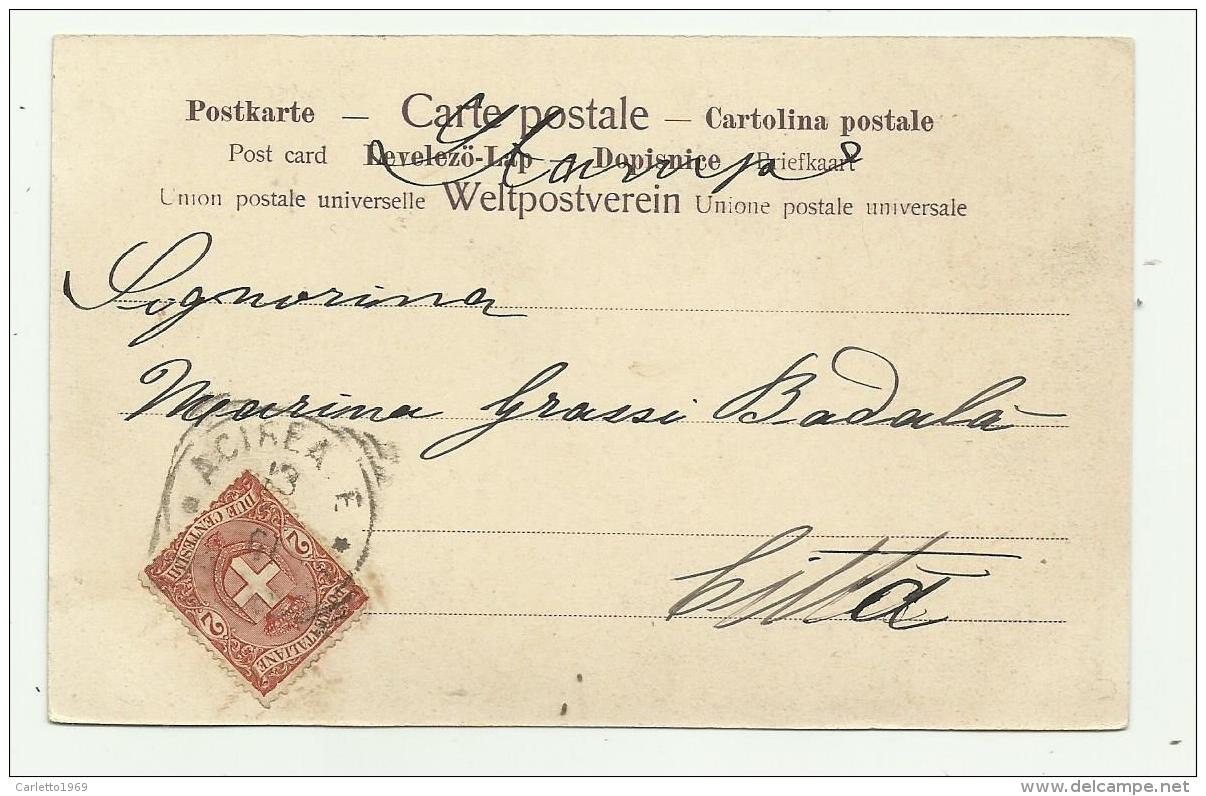 Postkarte — Carte postale — Cartolina postale
Post card Levelezö-Lap — Dopisnice Briefkaart
Union postale universelle Weltpostverein Unione postale universale
Signorina
Marina Grassi Badalà
Città
ACIREALE
13
DUE CENTESIMI
2 2
POSTE ITALIANE
Carletto1969
www.delcampe.net